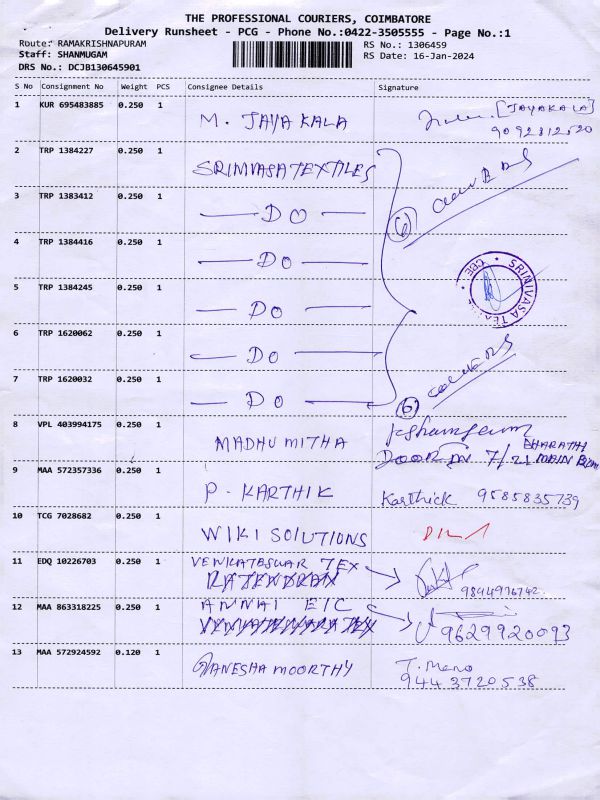 THE PROFESSIONAL COURIERS, COIMBATORE
Delivery Runsheet - PCG - Phone No.:0422-3505555 - Page No.:1
Route: RAMAKRISHNAPURAM
RS No.: 1306459
Staff: SHANMUGAM
RS Date: 16-Jan-2024
DRS No.: DCJB130645901
S No Consignment No Weight PCS Consignee Details Signature
1 KUR 695483885 0.250 1 M. JAYA KALA [JAYAKALA]
9092812520
2 TRP 1384227 0.250 1 SRINIVASA TEXTILES
3 TRP 1383412 0.250 1 — DO — (6)
4 TRP 1384416 0.250 1 — DO —
SRINIVASA CBE
5 TRP 1384245 0.250 1 — DO —
6 TRP 1620062 0.250 1 — DO —
7 TRP 1620032 0.250 1 — DO — (6)
8 VPL 403994175 0.250 1 MADHU MITHA
BHARATHI
DOOR 7/21 MAIN
9 MAA 572357336 0.250 1 P. KARTHIK Karthick 9585835739
10 TCG 7028682 0.250 1 WIKI SOLUTIONS
11 EDQ 10226703 0.250 1 VENKATESWAR TEX
9844976742
12 MAA 863318225 0.250 1 ANNAI EIC
9629920093
13 MAA 572924592 0.120 1 GANESHA MOORTHY T. Mano
9443720538